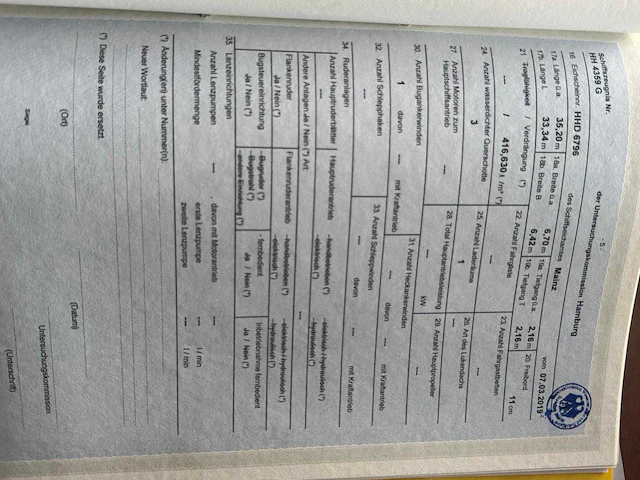 - 5 -
Schiffszeugnis Nr. der Untersuchungskommission Hamburg
HH 4359 G
16. Eichschein-Nr. HHD 6796 des Schiffseichamtes Mainz vom 07.03.2019
17a. Länge ü.a. 35,20 m 18a. Breite ü.a. 6,70 m 19a. Tiefgang ü.a. 2,16 m 20. Freibord
17b. Länge L 33,34 m 18b. Breite B 6,42 m 19b. Tiefgang T 2,16 m 11 cm
21. Tragfähigkeit / Verdrängung (*) 22. Anzahl Fahrgäste 23. Anzahl Fahrgastbetten
--- / 416,630 t /m³ (*) --- ---
24. Anzahl wasserdichter Querschotte 25. Anzahl Laderäume 26. Art des Lukendachs
3 1 ---
27. Anzahl Motoren zum Hauptschiffsantrieb 28. Total Hauptantriebsleistung 29. Anzahl Hauptpropeller
--- --- kW ---
30. Anzahl Bugankerwinden 31. Anzahl Heckankerwinden
1 davon --- mit Kraftantrieb --- davon --- mit Kraftantrieb
32. Anzahl Schlepphaken 33. Anzahl Schleppwinden
--- --- davon --- mit Kraftantrieb
34. Ruderanlagen
Anzahl Hauptruderblätter Hauptruderantrieb - handbetrieben (*) - elektrisch / hydraulisch (*)
--- - elektrisch (*) - hydraulisch (*)
Andere Anlagen: Ja / Nein (*) Art: ---
Flankenruder Flankenruderantrieb - handbetrieben (*) - elektrisch / hydraulisch (*)
Ja / Nein (*) - elektrisch (*) - hydraulisch (*)
Bugsteuereinrichtung - Bugruder (*) - fernbedient Inbetriebnahme fernbedient
Ja / Nein (*) - Bugstrahl (*) Ja / Nein (*) Ja / Nein (*)
- andere Einrichtung (*)
35. Lenzeinrichtungen
Anzahl Lenzpumpen --- davon mit Motorantrieb ---
Mindestfördermenge erste Lenzpumpe --- l / min
zweite Lenzpumpe --- l / min
(*) Änderung(en) unter Nummer(n):
Neuer Wortlaut:
(*) Diese Seite wurde ersetzt.
(Ort) (Datum)
Untersuchungskommission
Siegel
(Unterschrift)